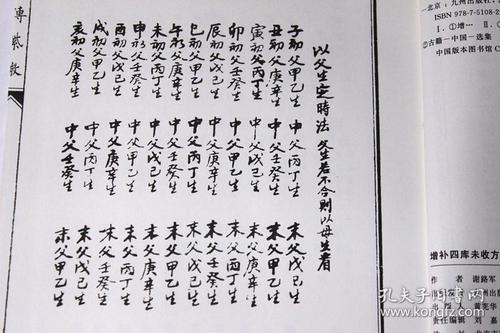 —北京：九州出版社，
ISBN 978-7-5108-2
Ⅰ.①增… Ⅱ.
②古籍－中国－选集
中国版本图书馆C
增补四库未收方
作 者 谢路军
出版人 黄宪华
责任编辑 刘 嘉
以父生定時法 父生若不合則以母生看
子初父甲乙生 中父丙丁生 末父戊己生
丑初父庚辛生 中父壬癸生 末父甲乙生
寅初父丙丁生 中父戊己生 末父庚辛生
卯初父壬癸生 中父甲乙生 末父丙丁生
辰初父戊己生 中父庚辛生 末父壬癸生
巳初父甲乙生 中父丙丁生 末父戊己生
午初父庚辛生 中父壬癸生 末父甲乙生
未初父丙丁生 中父戊己生 末父庚辛生
申初父壬癸生 中父甲乙生 末父丙丁生
酉初父戊己生 中父庚辛生 末父壬癸生
戌初父甲乙生 中父丙丁生 末父戊己生
亥初父庚辛生 中父壬癸生 末父甲乙生
傳
孔夫子旧书网